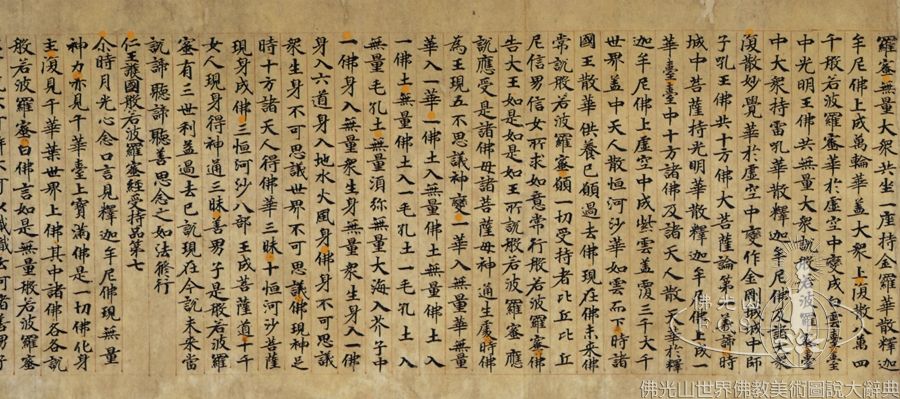 羅蜜無量大眾共坐一座持金羅華散釋迦
牟尼佛上成萬輪華蓋大眾上復散萬四
千般若波羅蜜華於虛空中變成白雲臺臺
中光明王佛共無量大眾說般若波羅蜜臺
中大眾持雷吼華散釋迦牟尼佛及諸大眾
復散妙覺華於虛空中變作金剛城城中師
子吼王佛共十方佛大菩薩論第一義諦時
城中菩薩持光明華散釋迦牟佛上成一
華臺臺中十方諸佛及諸天人散天華於釋
迦牟尼佛上虛空中成紫雲盖覆三千大千
世界盖中天人散恒河沙華如雲而下時諸
國王散華供養已願過去佛現在佛未來佛
常說般若波羅蜜願一切受持者比丘比丘
尼信男信女所求如意常行般若波羅蜜佛
告大王如是如是如王所說般若波羅蜜應
說應受是諸佛母諸菩薩母神通生處時佛
為王現五不思議神變一華入無量華無量
華入一華一佛土入無量佛土無量佛土入
一佛土無量佛土入一毛孔土一毛孔土入
無量毛孔土無量須弥無量大海入芥子中
一佛身入無量眾生身無量眾生身入一佛
身入六道身入地水火風身佛身不可思議
眾生身不可思議世界不可思議佛現神足
時十方諸天人得佛華三昧十恒河沙菩薩
現身成佛三恒河沙八部王成菩薩道十千
女人現身得神通三昧善男子是般若波羅
蜜有三世利益過去已說現在今說未來當
說諦聽諦聽善思念之如法脩行
仁王護國般若波羅蜜經受持品第七
尒時月光心念口言見釋迦牟尼佛現無量
神力亦見千華臺上寶滿佛是一切佛化身
主復見千華葉世界上佛其中諸佛各各說
般若波羅蜜白佛言如是無量般若波羅蜜
佛光山世界佛教美術圖說大辭典